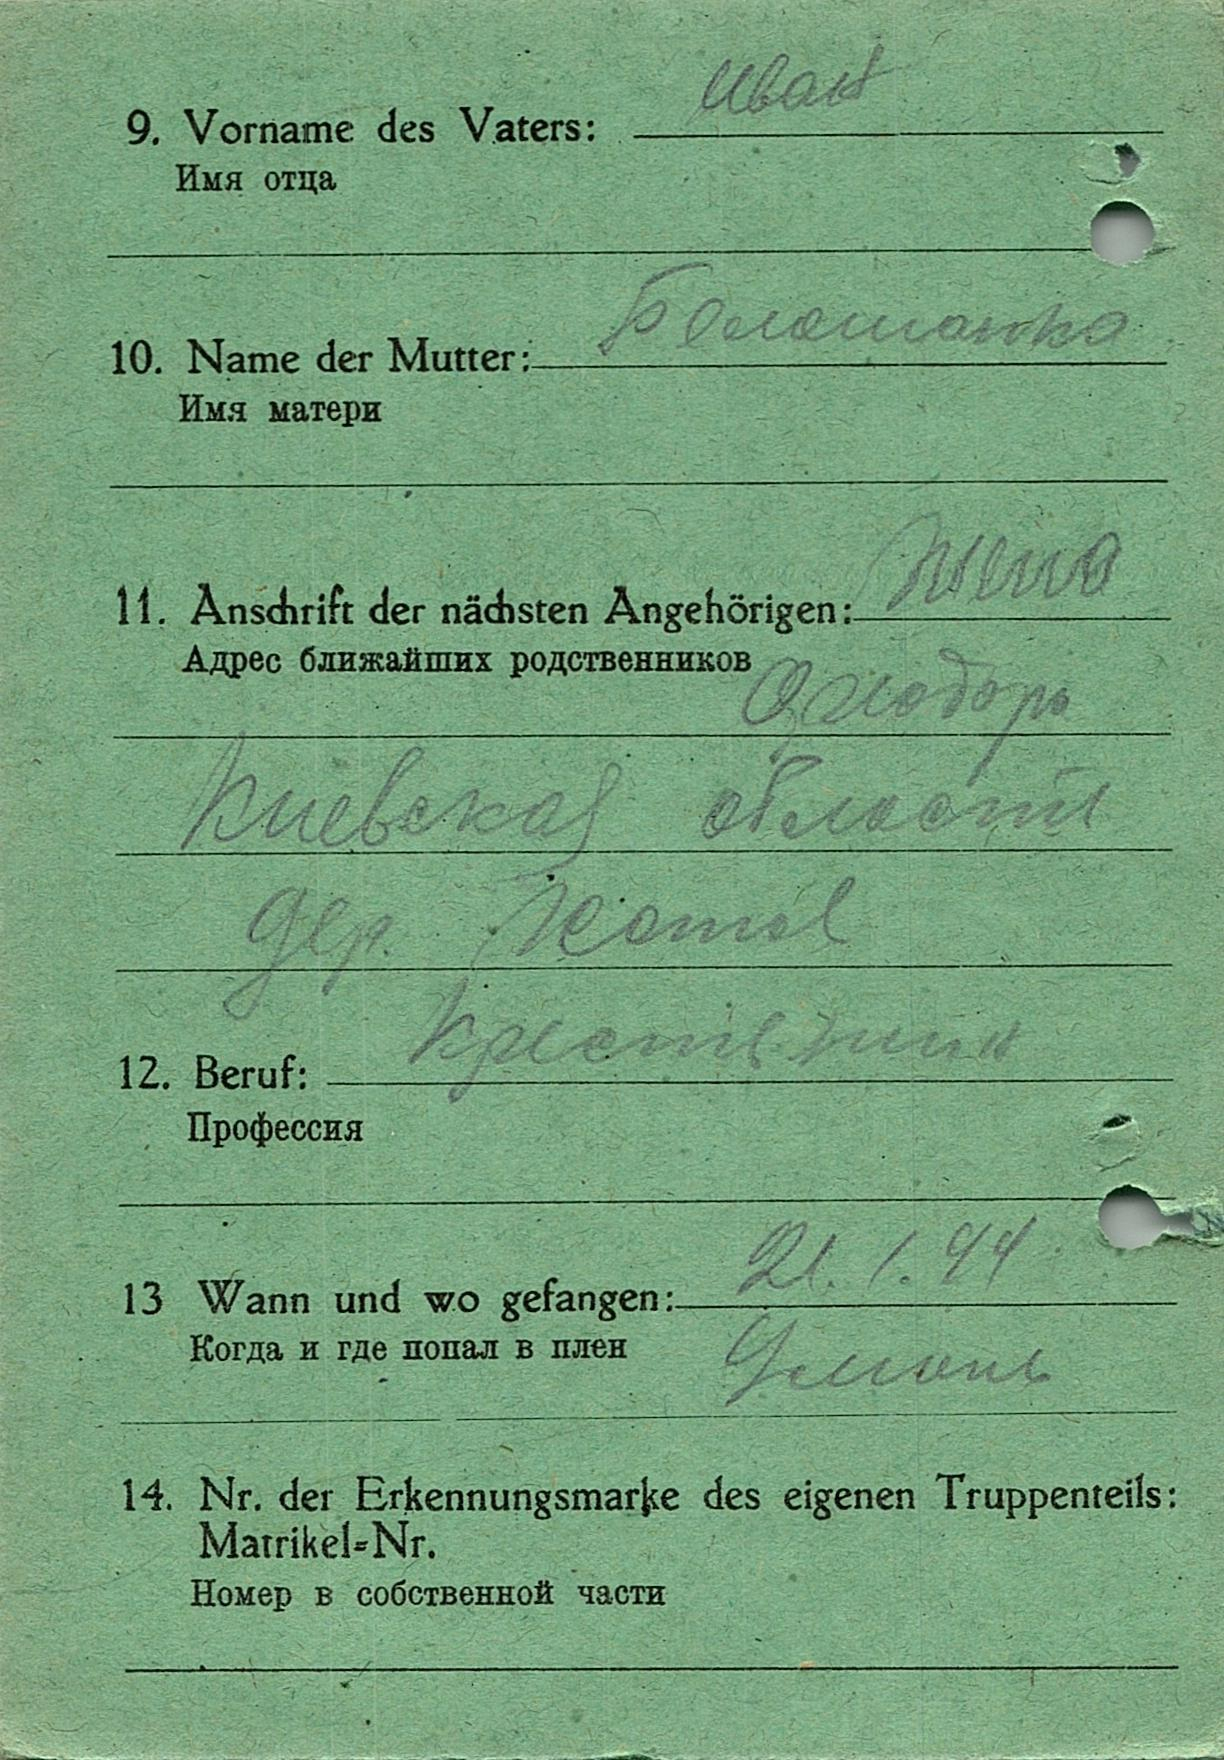 9. Vorname des Vaters: Иван
Имя отца
10. Name der Mutter:
Имя матери
11. Anschrift der nächsten Angehörigen: Жена
Адрес ближайших родственников
Киевская области
дер.
12. Beruf: Крестьянин
Профессия
13 Wann und wo gefangen: 21. 1. 44
Когда и где попал в плен
Умань
14. Nr. der Erkennungsmarke des eigenen Truppenteils:
Matrikel=Nr.
Номер в собственной части